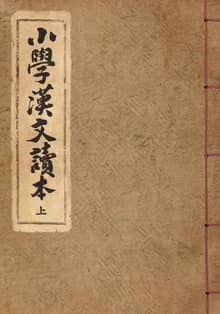 小學漢文讀本 上